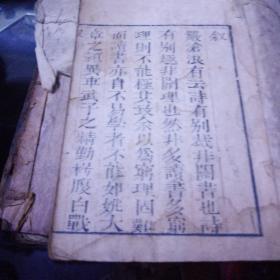 叙
嚴滄浪有云詩有别裁非關書也詩
有别趣非關理也然非多讀書多窮
理則不能極其至余以爲窮理固難
而讀書亦自不易學者不能如姚大
章之 異車武子之 勤 股白戰